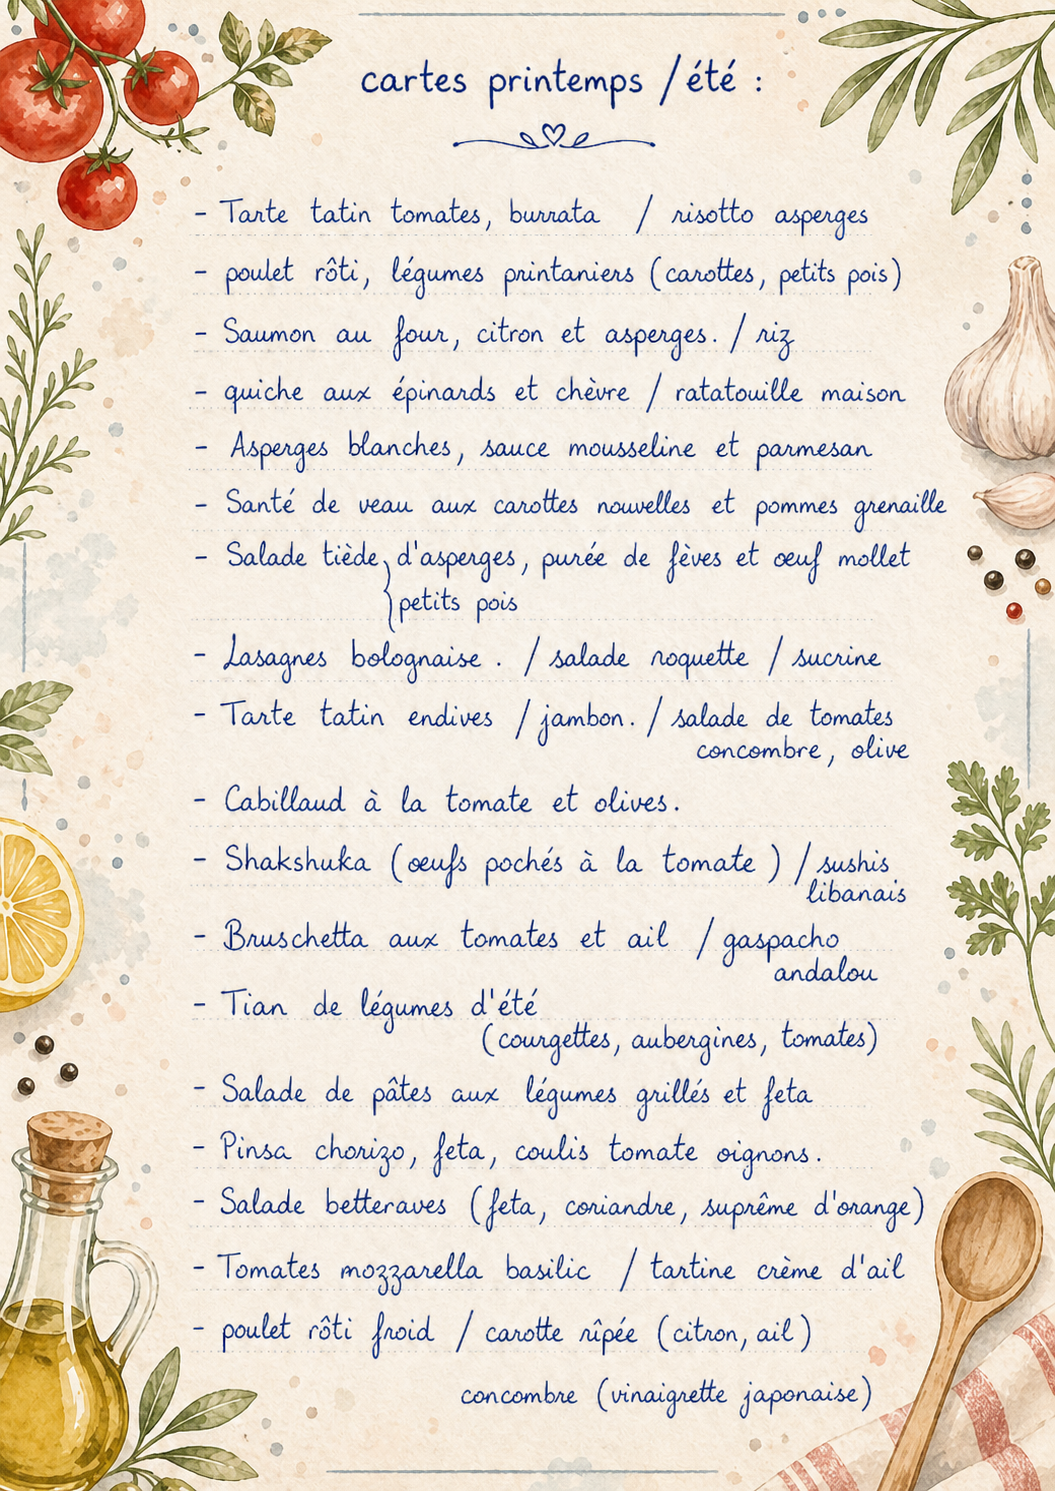 cartes printemps / été :
- Tarte tatin tomates, burrata / risotto asperges
- poulet rôti, légumes printaniers (carottes, petits pois)
- Saumon au four, citron et asperges. / riz
- quiche aux épinards et chèvre / ratatouille maison
- Asperges blanches, sauce mousseline et parmesan
- Santé de veau aux carottes nouvelles et pommes grenaille
- Salade tiède, d'asperges, purée de fèves et œuf mollet
petits pois
- Lasagnes bolognaise . / salade roquette / sucrine
- Tarte tatin endives / jambon. / salade de tomates
concombre, olive
- Cabillaud à la tomate et olives.
- Shakshuka (œufs pochés à la tomate ) / sushis
libanais
- Bruschetta aux tomates et ail / gaspacho
andalou
- Tian de légumes d'été
(courgettes, aubergines, tomates)
- Salade de pâtes aux légumes grillés et feta
- Pinsa chorizo, feta, coulis tomate oignons.
- Salade betteraves (feta, coriandre, suprême d'orange)
- Tomates mozzarella basilic / tartine crème d'ail
- poulet rôti froid / carotte rîpée (citron, ail)
concombre (vinaigrette japonaise)